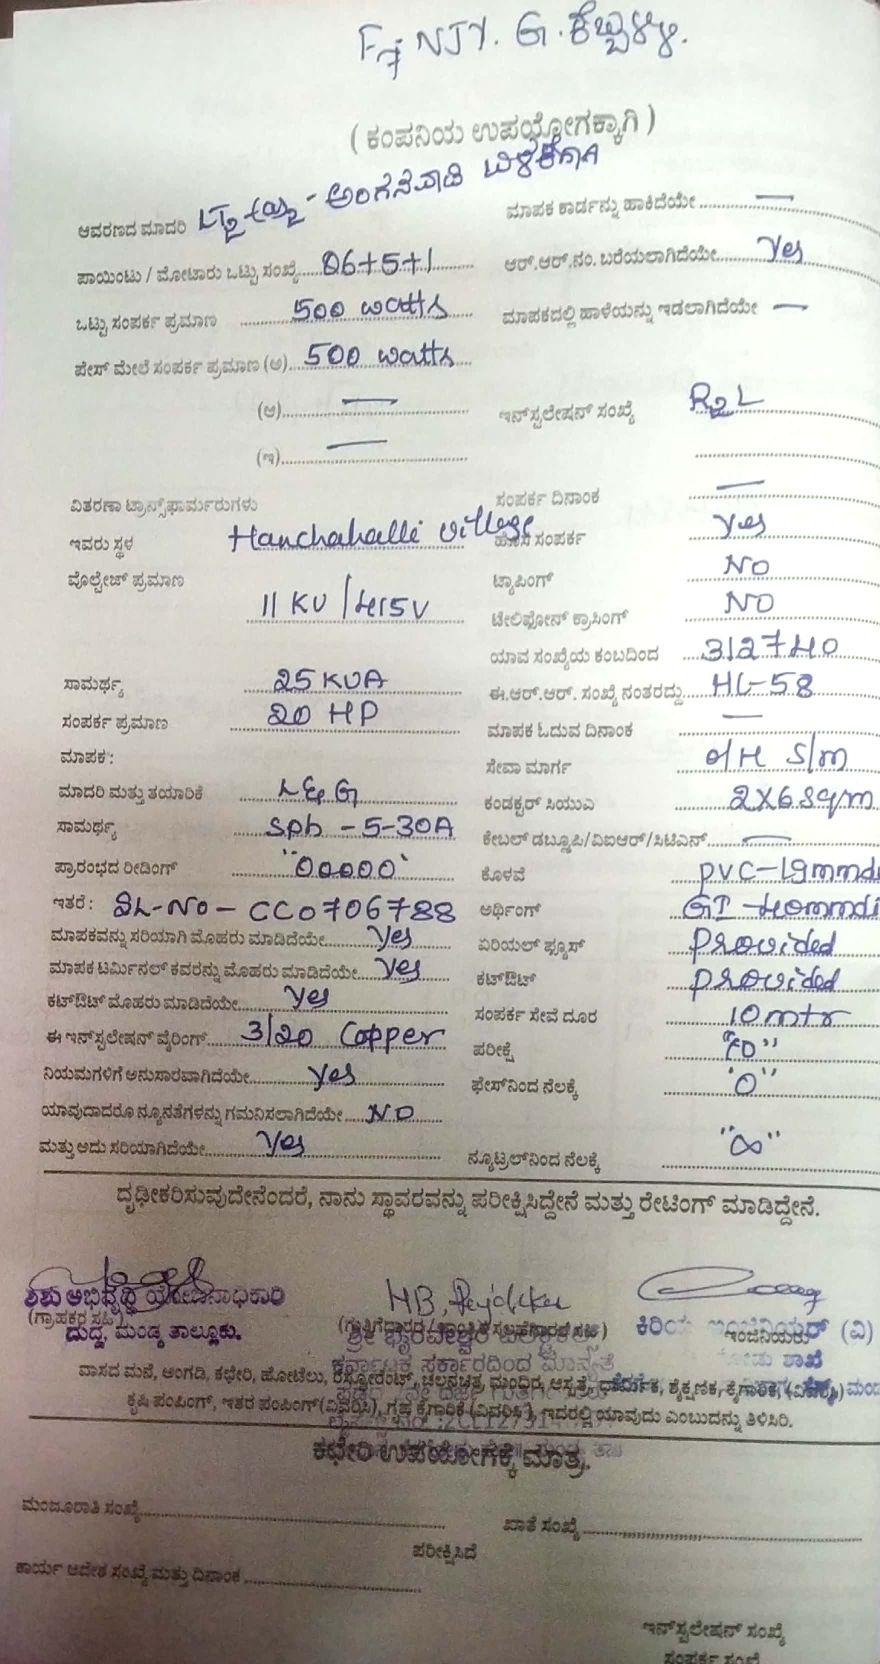 F7 NJY. G. ಕೆಬ್ಬಳ್ಳಿ.
( ಕಂಪನಿಯ ಉಪಯೋಗಕ್ಕಾಗಿ )
ಆವರಣದ ಮಾದರಿ - ಅಂಗನವಾಡಿ
ಮಾಪಕ ಕಾರ್ಡನ್ನು ಹಾಕಿದೆಯೇ —
ಪಾಯಿಂಟು / ಮೋಟಾರು ಒಟ್ಟು ಸಂಖ್ಯೆ 06+5+1
ಆರ್.ಆರ್.ನಂ. ಬರೆಯಲಾಗಿದೆಯೇ Yes
ಒಟ್ಟು ಸಂಪರ್ಕ ಪ್ರಮಾಣ 500 watts
ಮಾಪಕದಲ್ಲಿ ಹಾಳೆಯನ್ನು ಇಡಲಾಗಿದೆಯೇ —
ಪೇಸ್ ಮೇಲೆ ಸಂಪರ್ಕ ಪ್ರಮಾಣ (ಅ) 500 watts
(ಆ) —
ಇನ್‌ಸ್ಟಲೇಷನ್ ಸಂಖ್ಯೆ
(ಇ) —
ವಿತರಣಾ ಟ್ರಾನ್ಸ್‌ಫಾರ್ಮರುಗಳು
ಸಂಪರ್ಕ ದಿನಾಂಕ —
ಇವರು ಸ್ಥಳ Hanchahalli village
ಹೊಸ ಸಂಪರ್ಕ Yes
ವೊಲ್ಟೇಜ್ ಪ್ರಮಾಣ 11 KV / 415V
ಟ್ಯಾಪಿಂಗ್ NO
ಟೇಲಿಫೋನ್ ಕ್ರಾಸಿಂಗ್ NO
ಯಾವ ಸಂಖ್ಯೆಯ ಕಂಬದಿಂದ 312740
ಸಾಮರ್ಥ್ಯ 25 KVA
ಈ.ಆರ್.ಆರ್. ಸಂಖ್ಯೆ ನಂತರದ್ದು HL-58
ಸಂಪರ್ಕ ಪ್ರಮಾಣ 20 HP
ಮಾಪಕ ಓದುವ ದಿನಾಂಕ —
ಮಾಪಕ :
ಸೇವಾ ಮಾರ್ಗ O/H S/m
ಮಾದರಿ ಮತ್ತು ತಯಾರಿಕೆ L&G
ಕಂಡಕ್ಟರ್ ಸಿಯುಎ 2X6 sqm
ಸಾಮರ್ಥ್ಯ sph - 5-30A
ಕೇಬಲ್ ಡಬ್ಲೂಪಿ/ವಿಐಆರ್/ಸಿಟಿಎನ್ —
ಪ್ರಾರಂಭದ ರೀಡಿಂಗ್ "00000"
ಕೊಳವೆ PVC-19mmdi
ಇತರೆ : SL-No - CC0706788
ಅರ್ಥಿಂಗ್ GI - 40mmdi
ಮಾಪಕವನ್ನು ಸರಿಯಾಗಿ ಮೊಹರು ಮಾಡಿದೆಯೇ Yes
ಏರಿಯಲ್ ಫ್ಯೂಸ್ Provided
ಮಾಪಕ ಟರ್ಮಿನಲ್ ಕವರನ್ನು ಮೊಹರು ಮಾಡಿದೆಯೇ Yes
ಕಟ್‌ಔಟ್ Provided
ಕಟ್‌ಔಟ್ ಮೊಹರು ಮಾಡಿದೆಯೇ Yes
ಸಂಪರ್ಕ ಸೇವೆ ದೂರ 10 mtr
ಈ ಇನ್‌ಸ್ಟಲೇಷನ್ ವೈರಿಂಗ್ 3/20 Copper
ಪರೀಕ್ಷೆ
ನಿಯಮಗಳಿಗೆ ಅನುಸಾರವಾಗಿದೆಯೇ Yes
ಫೇಸ್‌ನಿಂದ ನೆಲಕ್ಕೆ "0"
ಯಾವುದಾದರೂ ನ್ಯೂನತೆಗಳನ್ನು ಗಮನಿಸಲಾಗಿದೆಯೇ NO
ಮತ್ತು ಅದು ಸರಿಯಾಗಿದೆಯೇ Yes
ನ್ಯೂಟ್ರಲ್‌ನಿಂದ ನೆಲಕ್ಕೆ "∞"
ದೃಢೀಕರಿಸುವುದೇನೆಂದರೆ, ನಾನು ಸ್ಥಾವರವನ್ನು ಪರೀಕ್ಷಿಸಿದ್ದೇನೆ ಮತ್ತು ರೇಟಿಂಗ್ ಮಾಡಿದ್ದೇನೆ.
ಶಿಶು ಅಭಿವೃದ್ಧಿ ಯೋಜನಾಧಿಕಾರಿ
(ಗ್ರಾಹಕರ ಸಹಿ)
ದುದ್ದ, ಮಂಡ್ಯ ತಾಲ್ಲೂಕು.
ಕಿರಿಯ ಇಂಜಿನಿಯರ್ (ವಿ)
ಇಂಜಿನಿಯರು
ಶ್ರೀ ಭೈರವೇಶ್ವರ
ಕರ್ನಾಟಕ ಸರ್ಕಾರದಿಂದ ಮಾನ್ಯತೆ
ಶಾಖೆ
ವಾಸದ ಮನೆ, ಅಂಗಡಿ, ಕಛೇರಿ, ಹೋಟೆಲು, ರೆಸ್ಟೋರೆಂಟ್, ಚಲನಚಿತ್ರ ಮಂದಿರ, ಆಸ್ಪತ್ರೆ, ಧಾರ್ಮಿಕ, ಶೈಕ್ಷಣಿಕ, ಕೈಗಾರಿಕೆ, (ವಿವರಿಸಿ)
ಕೃಷಿ ಪಂಪಿಂಗ್, ಇತರ ಪಂಪಿಂಗ್ (ವಿವರಿಸಿ), ಗೃಹ ಕೈಗಾರಿಕೆ (ವಿವರಿಸಿ), ಇದರಲ್ಲಿ ಯಾವುದು ಎಂಬುದನ್ನು ತಿಳಿಸಿರಿ.
ಕಛೇರಿ ಉಪಯೋಗಕ್ಕೆ ಮಾತ್ರ.
ಮಂಜೂರಾತಿ ಸಂಖ್ಯೆ
ಖಾತೆ ಸಂಖ್ಯೆ
ಪರೀಕ್ಷಿಸಿದೆ
ಕಾರ್ಯ ಆದೇಶ ಸಂಖ್ಯೆ ಮತ್ತು ದಿನಾಂಕ
ಇನ್‌ಸ್ಟಲೇಷನ್ ಸಂಖ್ಯೆ
ಸಂಪರ್ಕ ಸಂಖ್ಯೆ